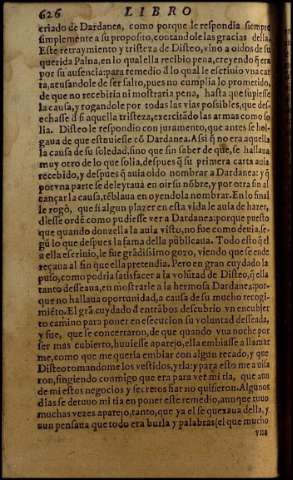 626 LIBRO
criado de Dardanea, como porque le respondia siempre
simplemente a su proposito, contandole las gracias della.
Este retraymiento y tristeza de Disteo, vino a oidos de su
querida Palna, en lo qual ella recibio pena, creyendo q̃ era
por su ausencia: para remedio d lo qual le escriuio vna car
ta, acusandole de ser falto, pues no cumplia lo prometido,
de que no recebiria ni mostraria pena, hasta que supiesse
la causa, y rogandole por todas las vias possibles, que des-
echasse d si aquella tristeza, exercitãdo las armas como so
lia. Disteo le respondio con juramento, que antes se hol-
gaua de que estuuiesse cõ Dardanea. Assi q̃ no era aquella
la causa de su soledad, sino que sin saber de que, se hallaua
muy otro de lo que solia, despues q̃ su primera carta auia
recebido, y despues q̃ auia oido nombrar a Dardanea: y q̃
por vna parte se deleytaua en oir su nõbre, y por otra sin al
cançar la causa, tẽblaua en oyendola nombrar. En lo final
le rogò, que si algun plazer en esta vida le auia de hazer,
diesse ordẽ como pudiesse ver a Dardanea: porque puesto
que quando donzella la auia visto, no fue como deuia, se-
gũ lo que despues la fama della publicaua. Todo esto q̃ d
a ella escriuio, le fue grãdissimo gozo, viendo que se ende
reçaua al fin que ella pretendia. Pero en gran cuydado la
puso, como podria satisfacer a la volũtad de Disteo, q̃ ella
tanto desseaua, en mostrarle a la hermosa Dardanea: por-
que no hallaua oportunidad, a causa de su mucho recogi-
miẽto. El grã cuydado d entrãbos descubrio vn encubier
to camino para poner en execucion su voluntad desseada,
y fue, que le concertaron, de que quando vna noche por
ser mas cubierto, huuiesse aparejo, ella embiasse a llamar
me, como que me queria embiar con algun recado, y que
Disteo tomandome los vestidos, yria: y para esto me auisa
ron, fingiendo conmigo que era para ver mi tia, que aun
de mi estos negocios y secretos fiar no quisieron. Algunos
dias se detuuo mi tia en poner este remedio, aunque tuuo
muchas vezes aparejo, tanto, que ya el se quexaua della, y
aun pensaua que todo era burla y palabras (el que mucho
vna